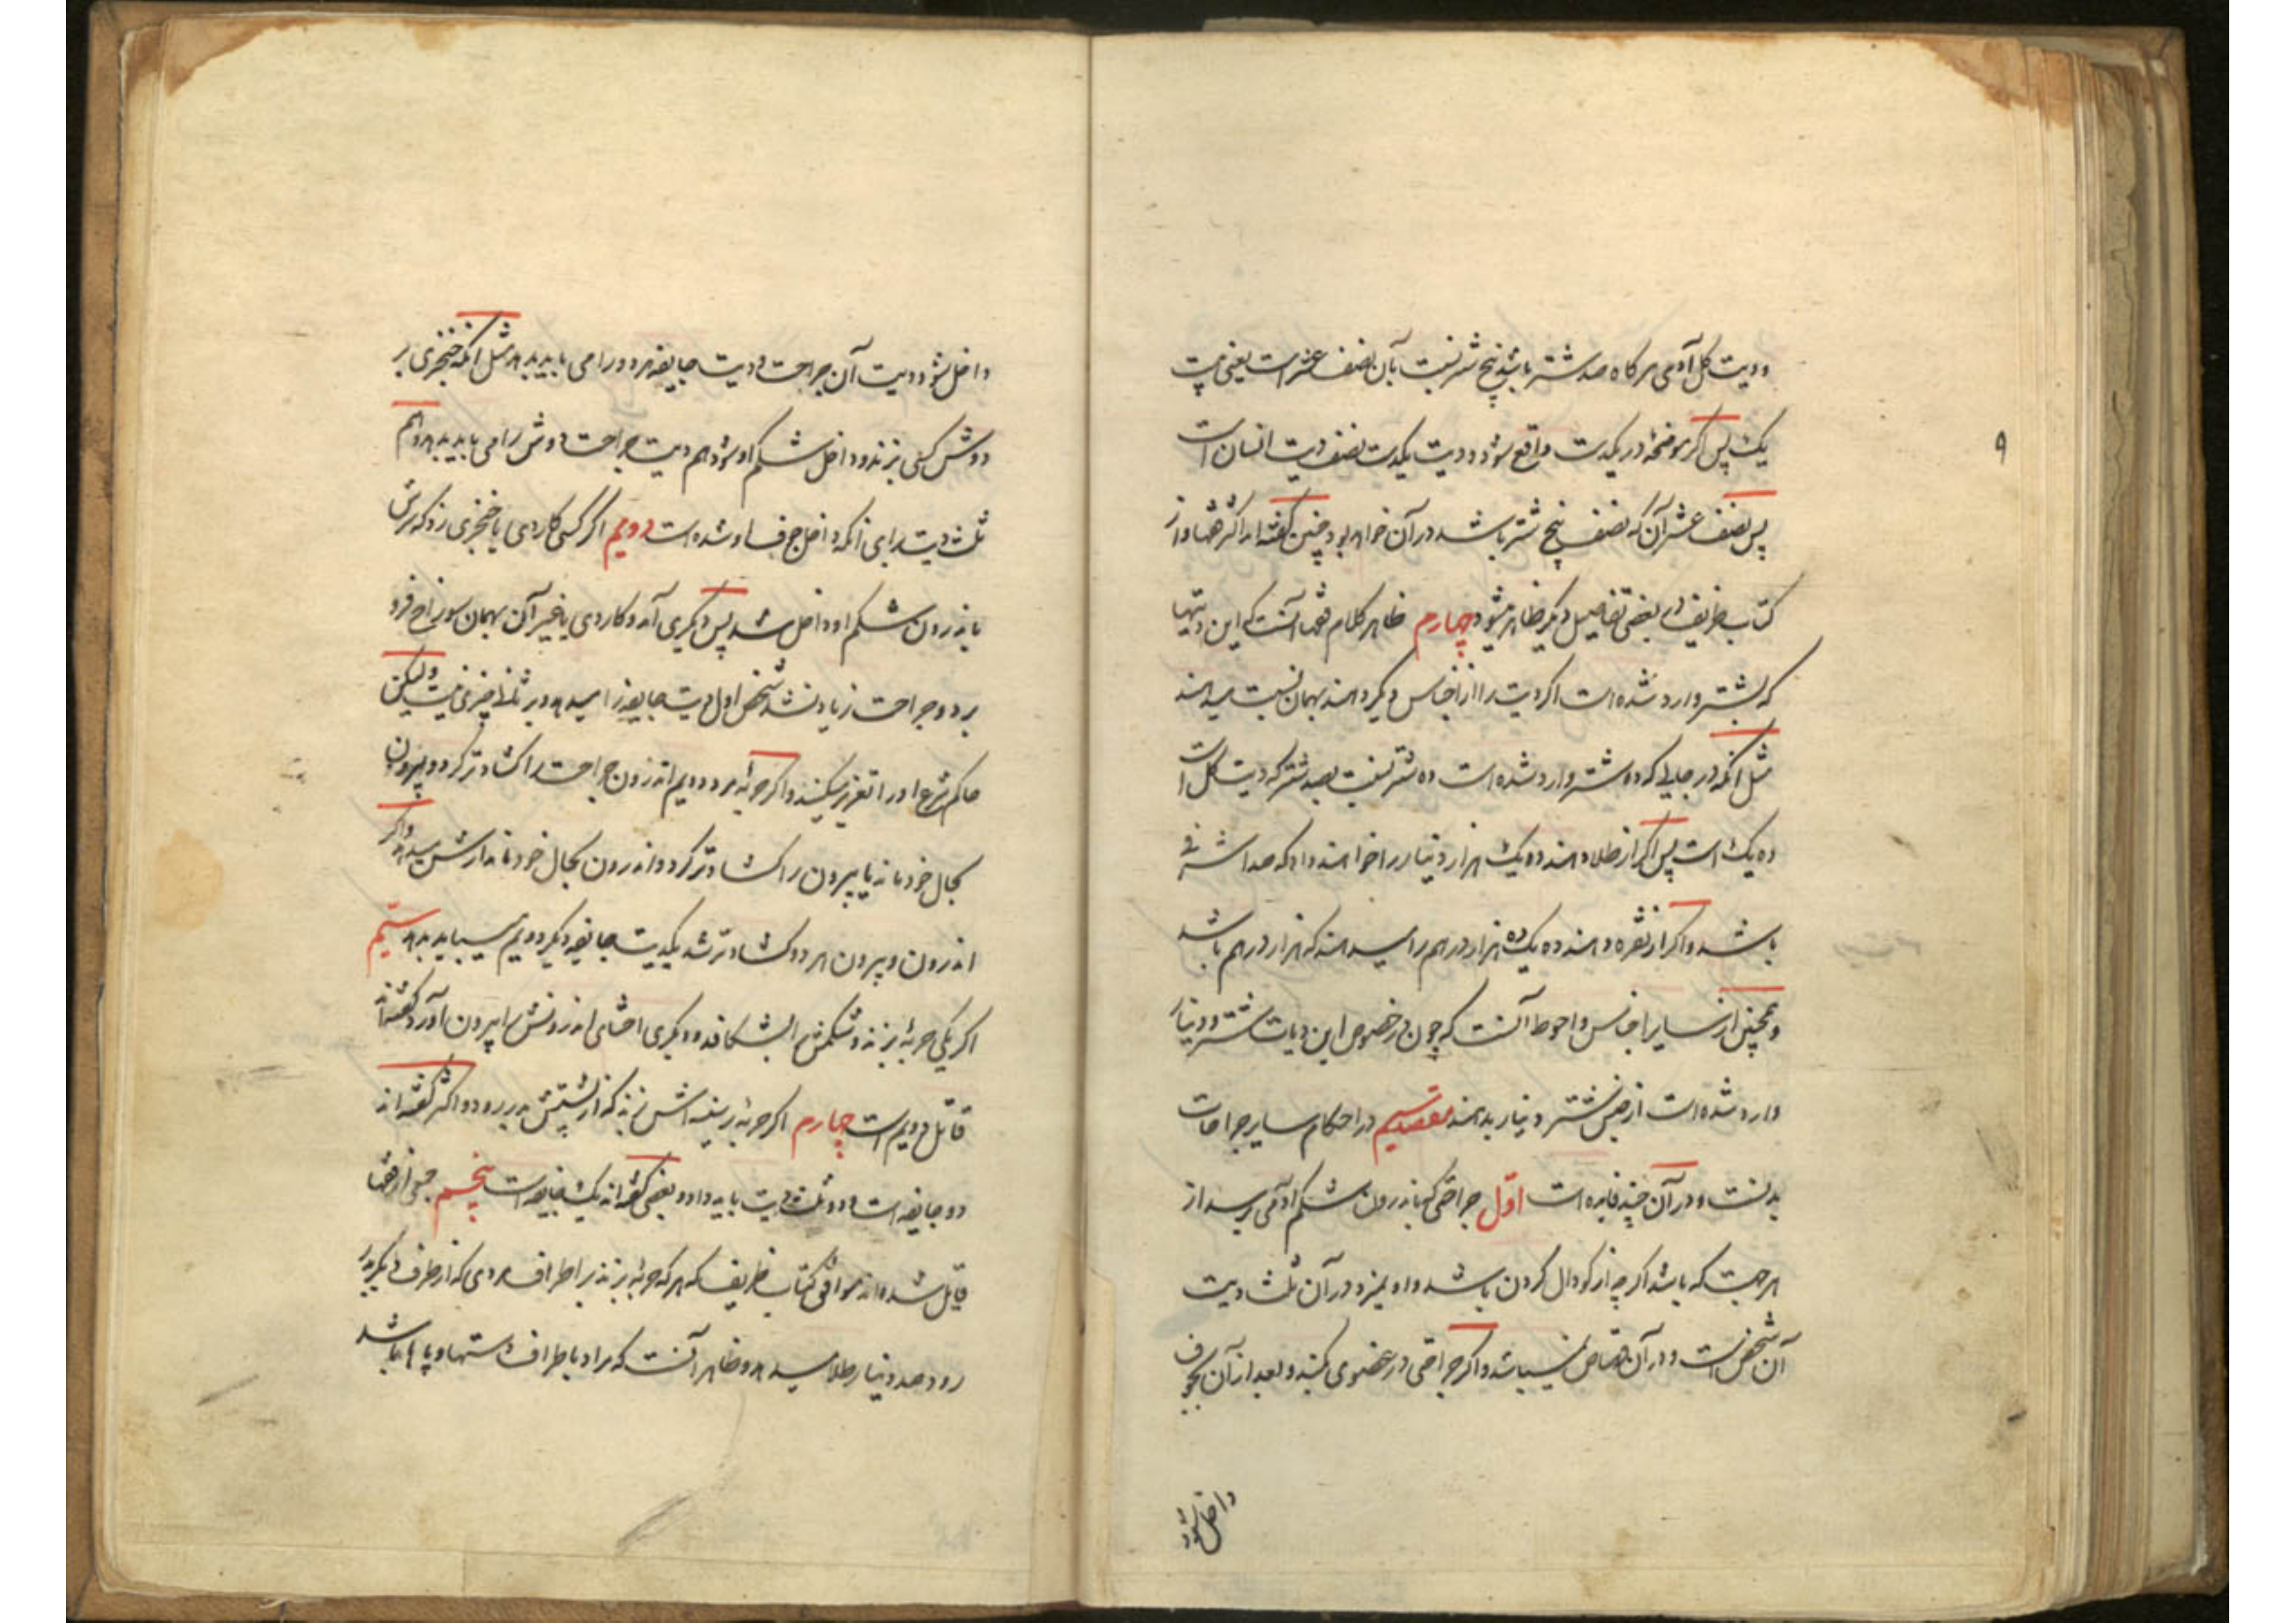 و دیت کل آدمی هرگاه صد شتر باشد پنج شتر نسبت بآن نصف عشر است یعنی بیست
یک پس اگر موضحهٔ در یکدست واقع شود و دیت یکدست نصف دیت انسان است
پس نصف عشر آن که نصف پنج شتر باشد در آن خواهد بود چنین گفته‌اند اکثر فقها و از
کتاب ظریف در بعضی تفاصیل دیگر ظاهر میشود چهارم ظاهر کلام فقها آنست که این دیتها
که بشتر وارد شده است اگر دیت را از اجناس دیگر دهند بهمان نسبت میدهند
مثل آنکه در جایی که ده شتر وارد شده است ده شتر نسبت بصد شتر که دیت کل است
ده یک است پس اگر از طلا دهند ده یک هزار دینار را خواهند داد که صد اشرفی
باشد و اگر از نقره دهند ده یک ده هزار درهم را میدهند که هزار درهم باشد
و همچنین از سایر اجناس و احوط آنست که چون در خصوص این دیات شتر و دینار
وارد شده است از جنس شتر و دینار بدهند مقصد سیم در احکام سایر جراحات
بدنست و در آن چند فایده است اول جراحتی که باندرون شکم آدمی برسد از
هر جهت که باشد اگر چه از گودال گردن باشد و او نمیرد در آن ثلث دیت
آن شخص است و در آن قصاص نمیباشد و اگر جراحتی در عضوی کنند و بعد از آن بجوف
داخل شود
۹
داخل شود دیت آن جراحت و دیت جایفه هر دو را می باید بدهد مثل آنکه خنجری بر
دوش کسی بزند و داخل شکم او شود هم دیت جراحت دوش را می باید بدهد و هم
ثلث دیت برای آنکه داخل جوف او شده است دویم اگر کسی کاردی یا خنجری زد که سرش
باندرون شکم او داخل شد پس دیگری آمد و کاردی یا غیر آن بهمان سوراخ فرو
برد و جراحت زیاد نشد شخص اول دیت جایفه را میدهد و بر ثانی چیزی نیست و لیکن
حاکم شرع او را تعزیر میکند و اگر حربهٔ مرد دویم اندرون جراحت را گشادتر کرد و بیرون
بحال خود ماند یا بیرون را گشادتر کرد و اندرون بحال خود ماند ارش میدهد و اگر
اندرون و بیرون هر دو گشادتر شد یکدیت جایفه دیگر دویم میباید بدهد سیم
اگر یکی حربهٔ بزند و شکمش را بشکافد و دیگری احشای اندرونش را بیرون آورد گفته‌اند
قاتل دویم است چهارم اگر حربه بر سینه اش زند که از پشتش بدر رود و اکثر گفته‌اند
دو جایفه است و دو ثلث دیت باید داد و بعضی گفته‌اند یک جایفه است پنجم جمعی از فقها
قایل شده‌اند موافق کتاب ظریف که هر که حربهٔ بزند بر اطراف مردی که از طرف دیگر بدر
رود صد دینار طلا میدهد و ظاهر آنست که مراد باطراف دستها و پاها باشد